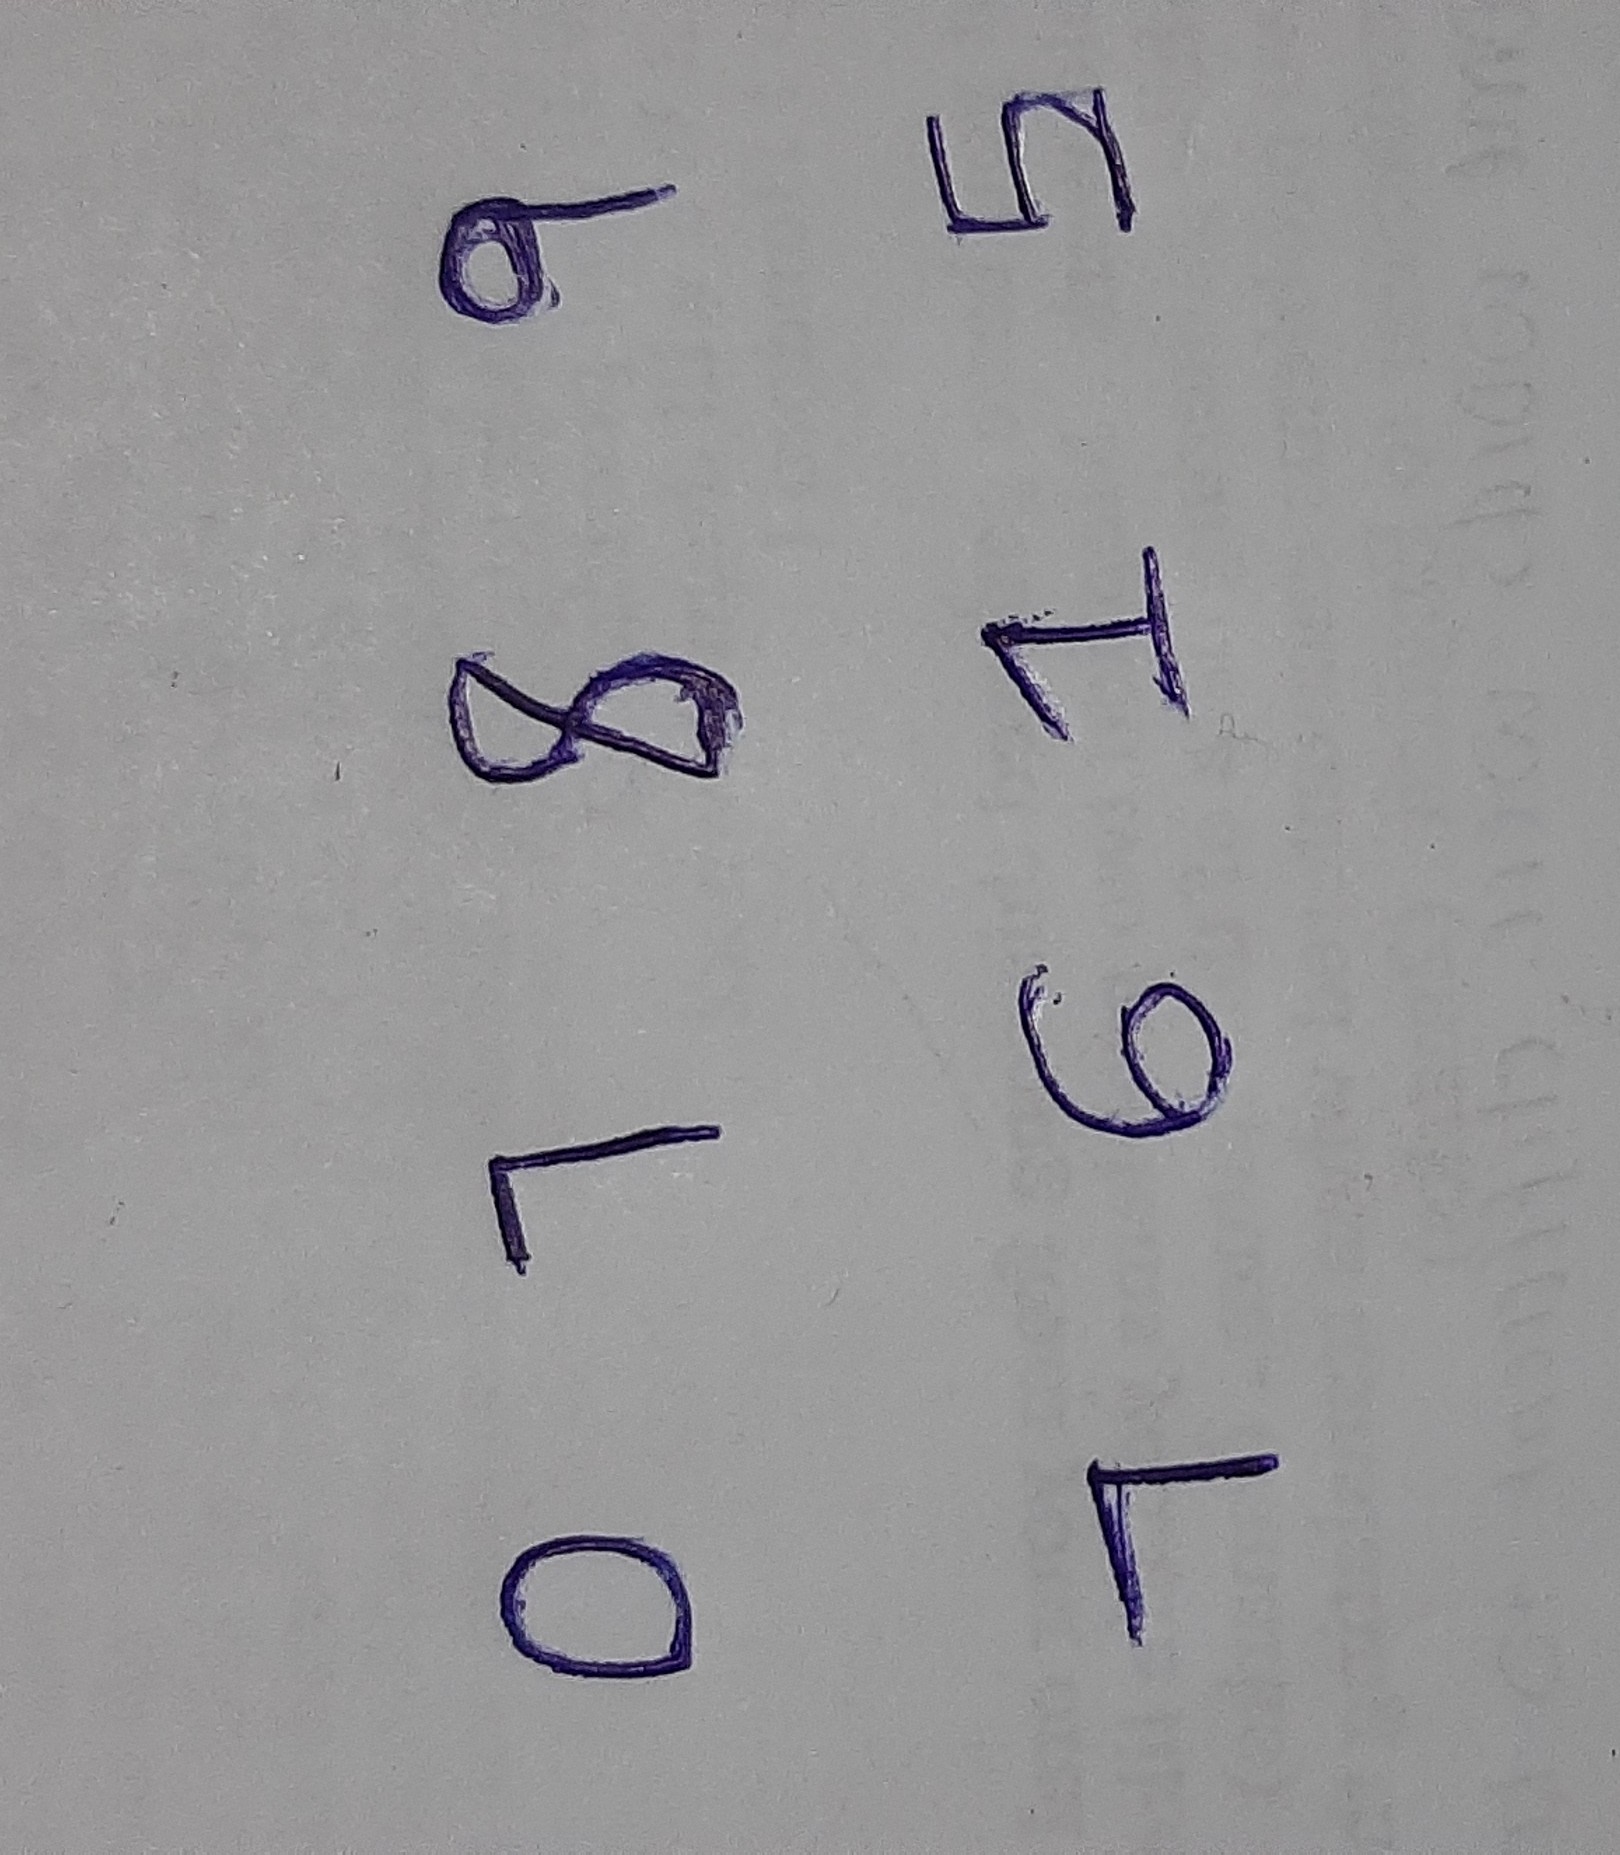 0 7 8 9
7 6 1 5